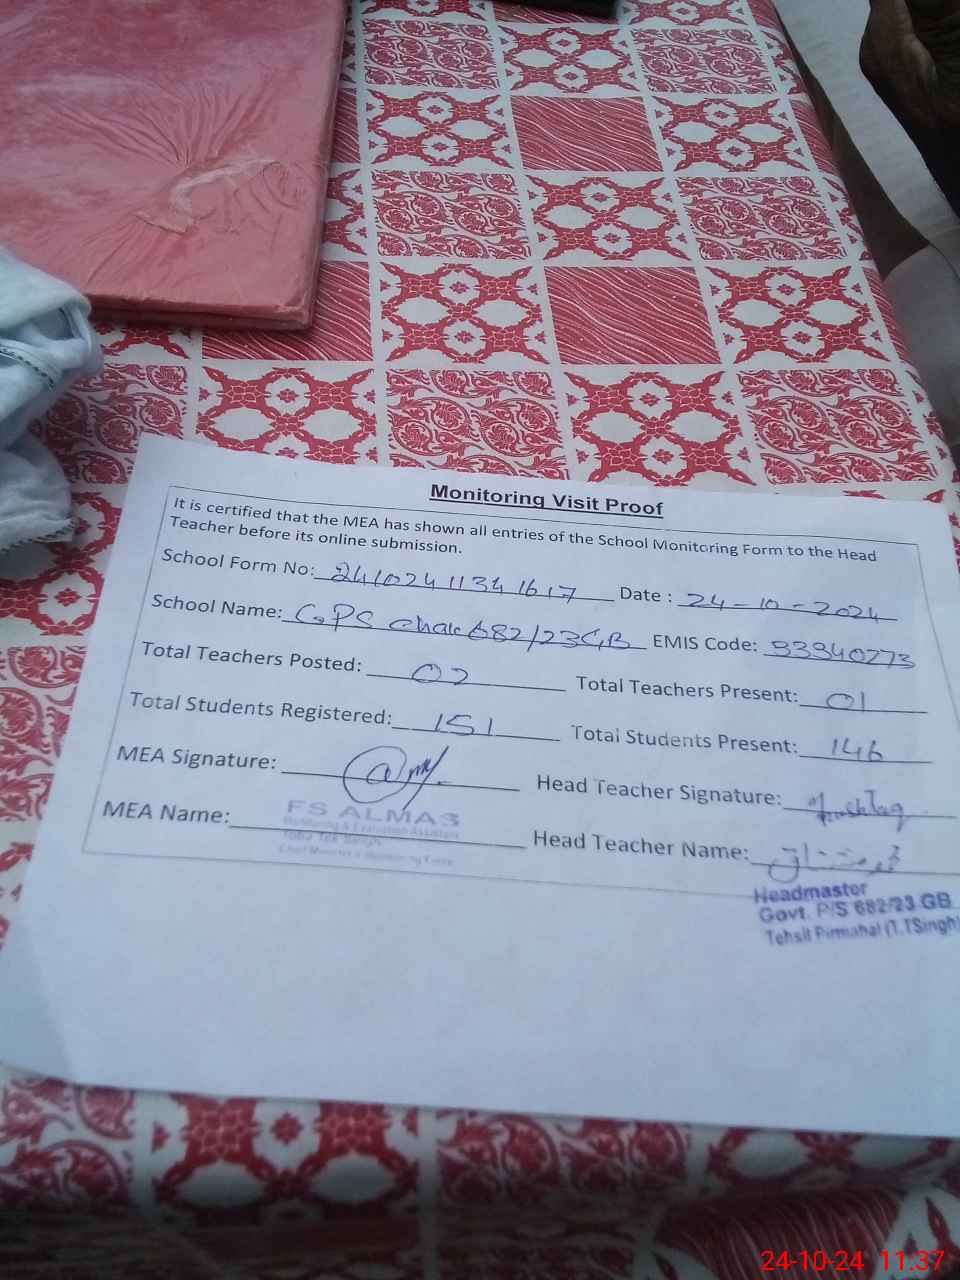 Monitoring Visit Proof
It is certified that the MEA has shown all entries of the School Monitoring Form to the Head
Teacher before its online submission.
School Form No: 24102411341617 Date : 24-10-2024
School Name: GPS Chak 682/23GB EMIS Code: 33340273
Total Teachers Posted: 02 Total Teachers Present: 01
Total Students Registered: 151 Total Students Present: 146
MEA Signature: Head Teacher Signature:
MEA Name: FS ALMAS Head Teacher Name:
Monitoring & Evaluation Assistant
Toba Tek Singh
Chief Minister's Monitoring Force
Headmaster
Govt. P/S 682/23 GB
Tehsil Pirmahal (T.TSingh)
24-10-24 11:37